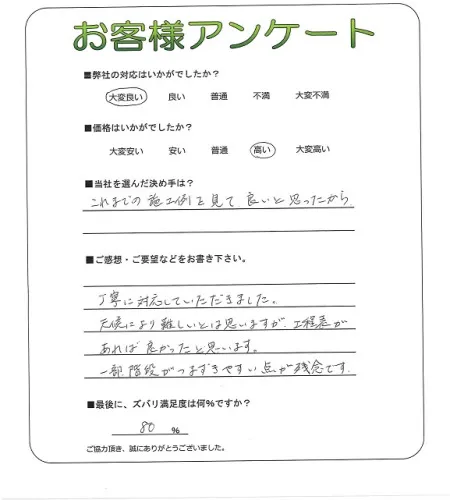 お客様アンケート
■弊社の対応はいかがでしたか?
大変良い 良い 普通 不満 大変不満
■価格はいかがでしたか?
大変安い 安い 普通 高い 大変高い
■当社を選んだ決め手は?
これまでの施工例を見て良いと思ったから
■ご感想・ご要望などをお書き下さい。
丁寧に対応していただきました。
天候により難しいとは思いますが、工程表が
あれば良かったと思います。
一部階段がつまずきやすい点が残念です。
■最後に、ズバリ満足度は何%ですか?
80 %
ご協力頂き、誠にありがとうございました。